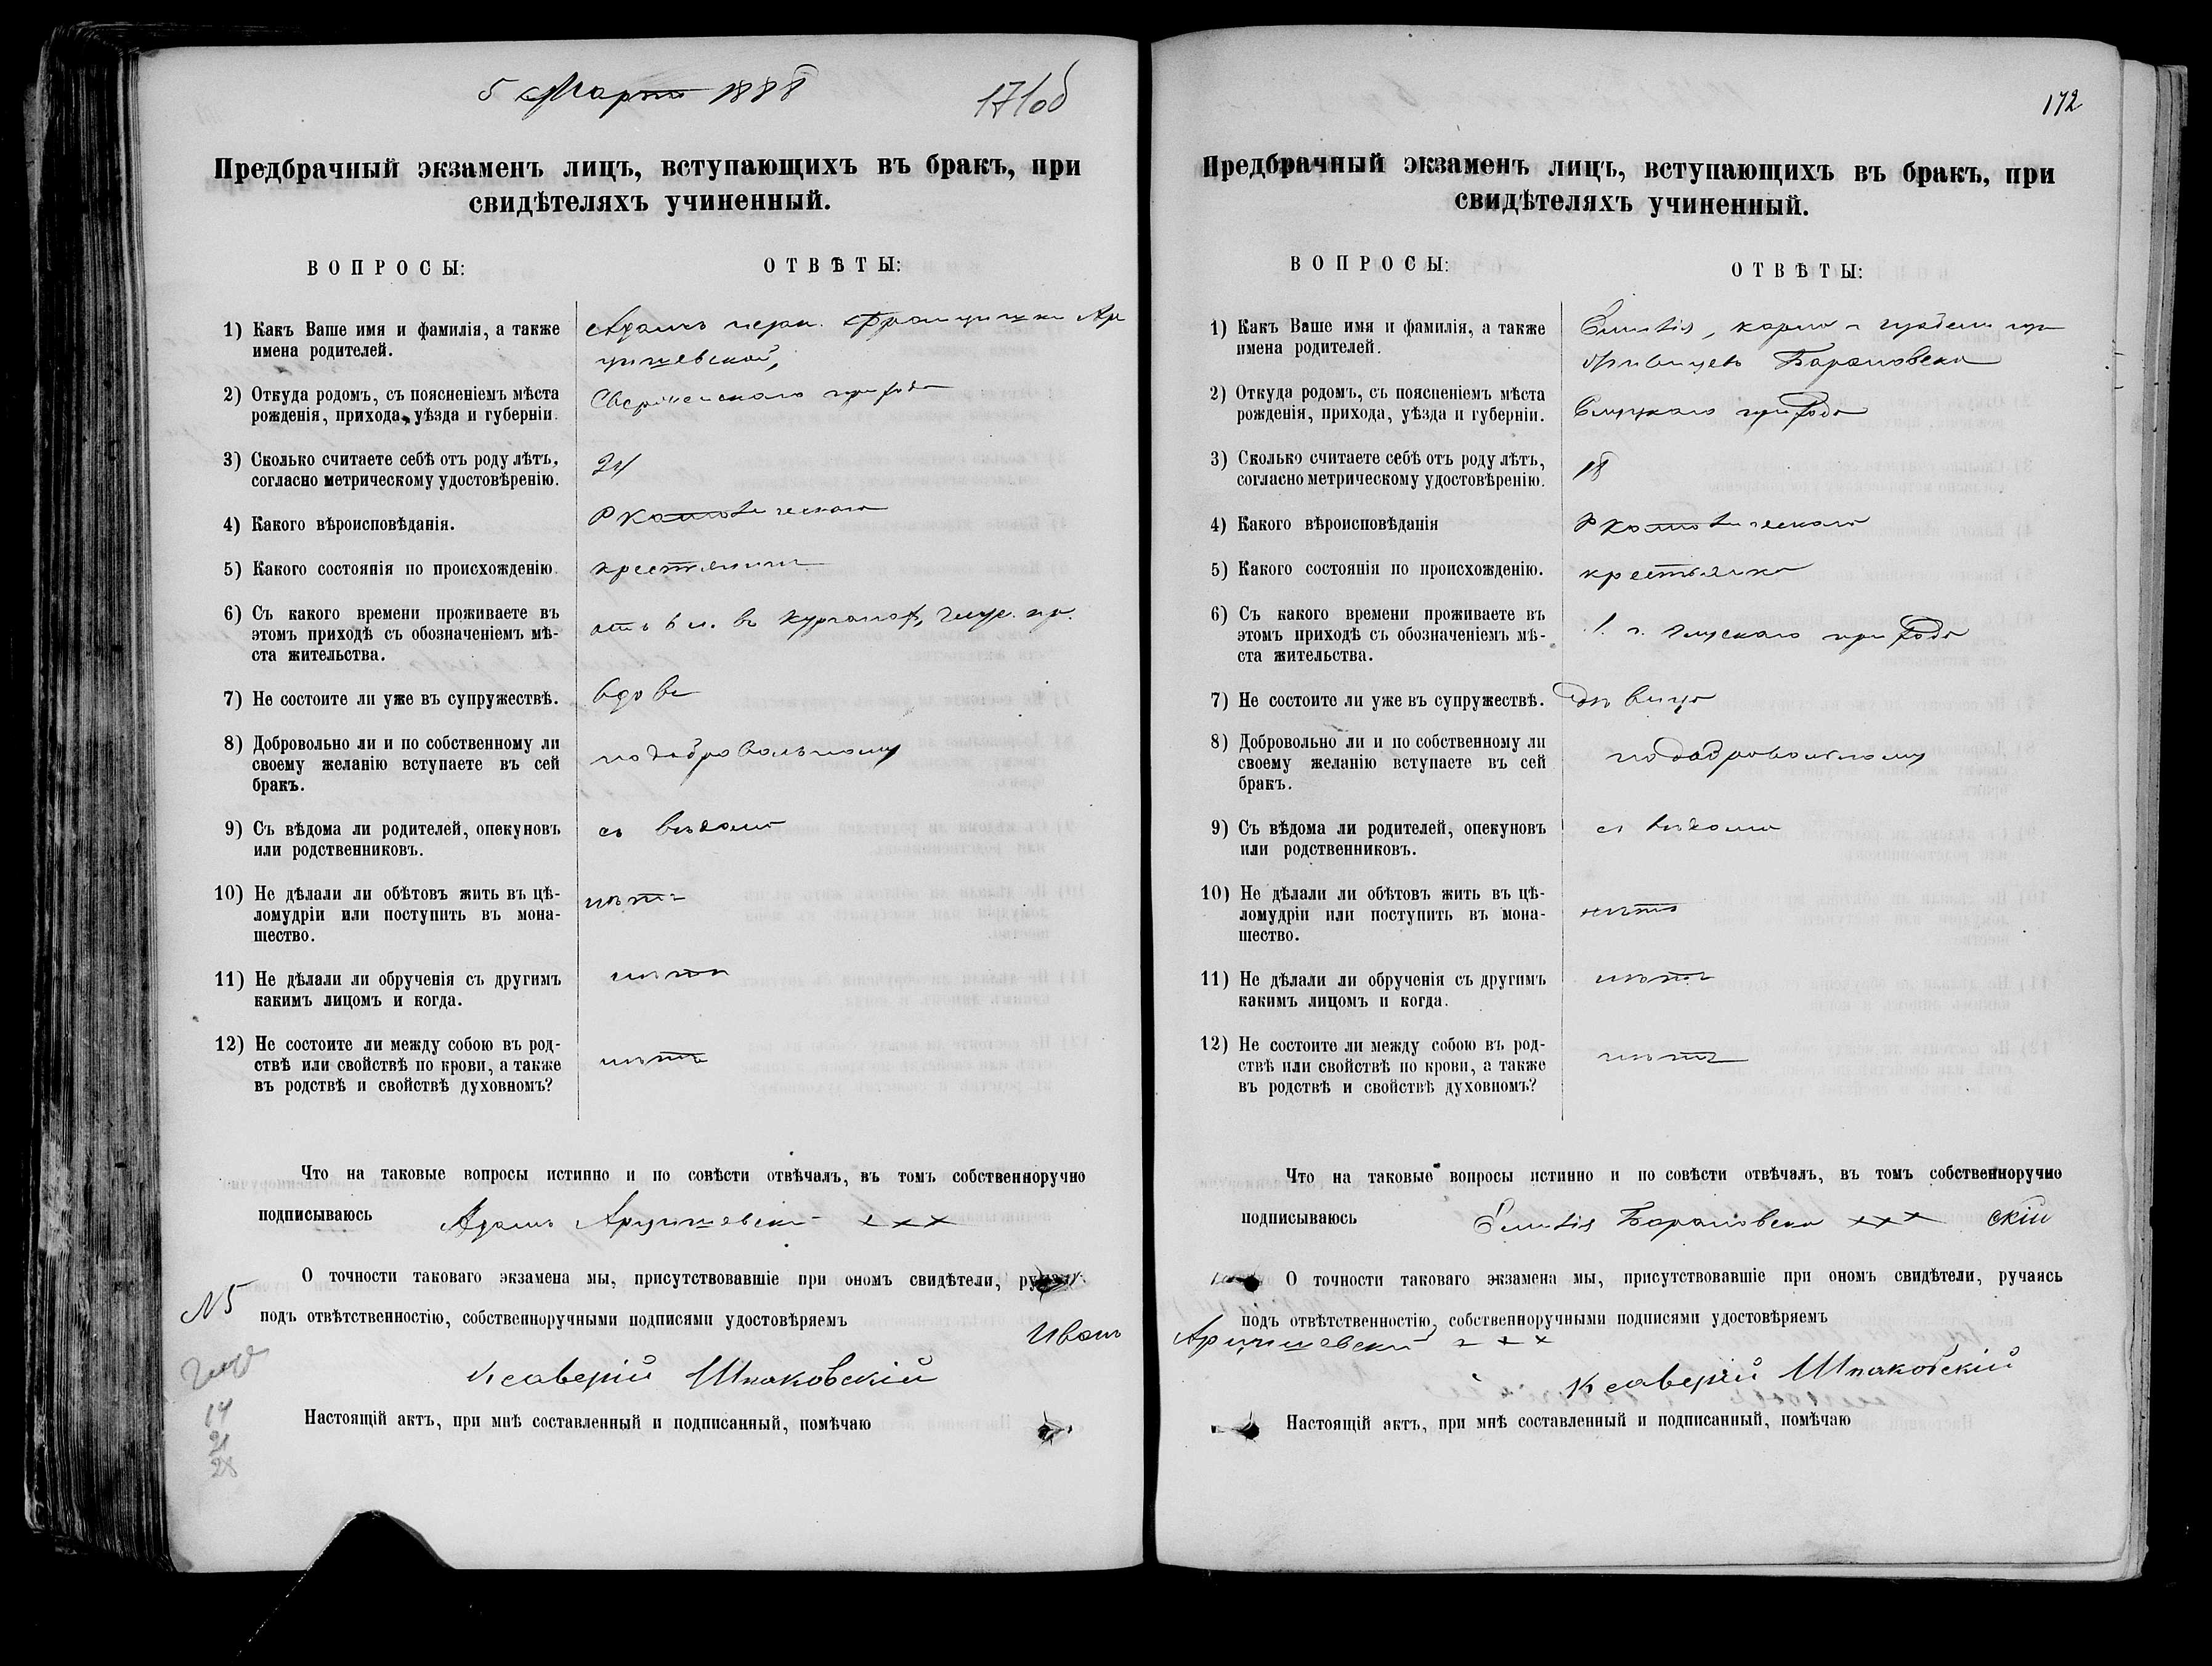 5 Марта 1888
171об
Предбрачный экзаменъ лицъ, вступающихъ въ бракъ, при
свидѣтеляхъ учиненный.
ВОПРОСЫ:
ОТВѢТЫ:
1) Какъ Ваше имя и фамилія, а также
имена родителей.
Адамъ
2) Откуда родомъ, съ поясненіемъ мѣста
рожденія, прихода, уѣзда и губерніи.
прихода
3) Сколько считаете себѣ отъ роду лѣтъ,
согласно метрическому удостовѣренію.
4) Какого вѣроисповѣданія.
Р католическаго
5) Какого состоянія по происхожденію.
крестянинъ
6) Съ какого времени проживаете въ
этомъ приходѣ съ обозначеніемъ мѣ-
ста жительства.
7) Не состоите ли уже въ супружествѣ.
8) Добровольно ли и по собственному ли
своему желанію вступаете въ сей
бракъ.
подобровольному
9) Съ вѣдома ли родителей, опекуновъ
или родственниковъ.
съ вѣдома
10) Не дѣлали ли обѣтовъ жить въ цѣ-
ломудріи или поступить въ мона-
шество.
нѣтъ
11) Не дѣлали ли обрученія съ другимъ
какимъ лицомъ и когда.
нѣтъ
12) Не состоите ли между собою въ род-
ствѣ или свойствѣ по крови, а также
въ родствѣ и свойствѣ духовномъ?
нѣтъ
Что на таковые вопросы истинно и по совѣсти отвѣчалъ, въ томъ собственноручно
подписываюсь Адамъ ххх
О точности таковаго экзамена мы, присутствовавшіе при ономъ свидѣтели, ручаясь
№ 5
подъ отвѣтственностію, собственноручными подписями удостовѣряемъ
Иванъ
Ксаверій Шпаковскій
Настоящій актъ, при мнѣ составленный и подписанный, помѣчаю
14
21
28
172
Предбрачный экзаменъ лицъ, вступающихъ въ бракъ, при
свидѣтеляхъ учиненный.
ВОПРОСЫ:
ОТВѢТЫ:
1) Какъ Ваше имя и фамилія, а также
имена родителей.
Барановска
2) Откуда родомъ, съ поясненіемъ мѣста
рожденія, прихода, уѣзда и губерніи.
прихода
3) Сколько считаете себѣ отъ роду лѣтъ,
согласно метрическому удостовѣренію.
18
4) Какого вѣроисповѣданія
Р католическаго
5) Какого состоянія по происхожденію.
крестьянка
6) Съ какого времени проживаете въ
этомъ приходѣ съ обозначеніемъ мѣ-
ста жительства.
прихода
7) Не состоите ли уже въ супружествѣ.
дѣвица
8) Добровольно ли и по собственному ли
своему желанію вступаете въ сей
бракъ.
подобровольному
9) Съ вѣдома ли родителей, опекуновъ
или родственниковъ.
съ вѣдома
10) Не дѣлали ли обѣтовъ жить въ цѣ-
ломудріи или поступить въ мона-
шество.
нѣтъ
11) Не дѣлали ли обрученія съ другимъ
какимъ лицомъ и когда.
нѣтъ
12) Не состоите ли между собою въ род-
ствѣ или свойствѣ по крови, а также
въ родствѣ и свойствѣ духовномъ?
нѣтъ
Что на таковые вопросы истинно и по совѣсти отвѣчалъ, въ томъ собственноручно
подписываюсь Барановска ххх скій
О точности таковаго экзамена мы, присутствовавшіе при ономъ свидѣтели, ручаясь
подъ отвѣтственностію, собственноручными подписями удостовѣряемъ
ххх
Ксаверій Шпаковскій
Настоящій актъ, при мнѣ составленный и подписанный, помѣчаю